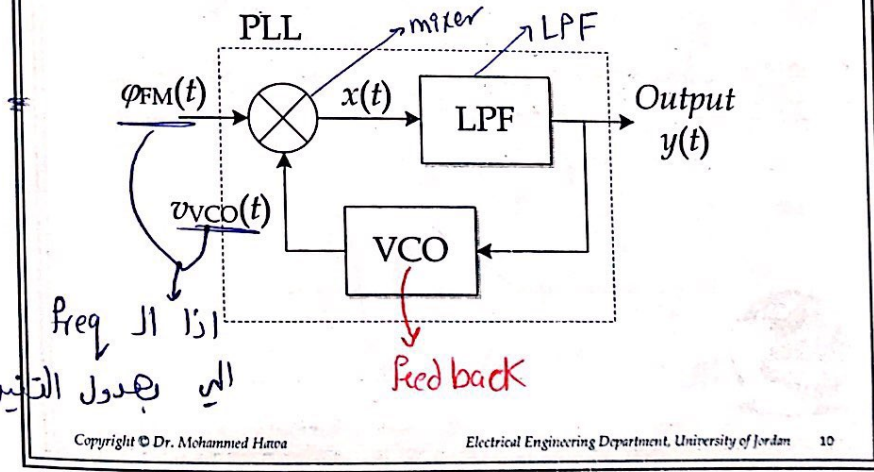 PLL
mixer
LPF
φFM(t)
x(t)
LPF
Output
y(t)
vVCO(t)
VCO
اذا ال freq
الي
feed back
Copyright © Dr. Mohammed Hawa
Electrical Engineering Department, University of Jordan
10